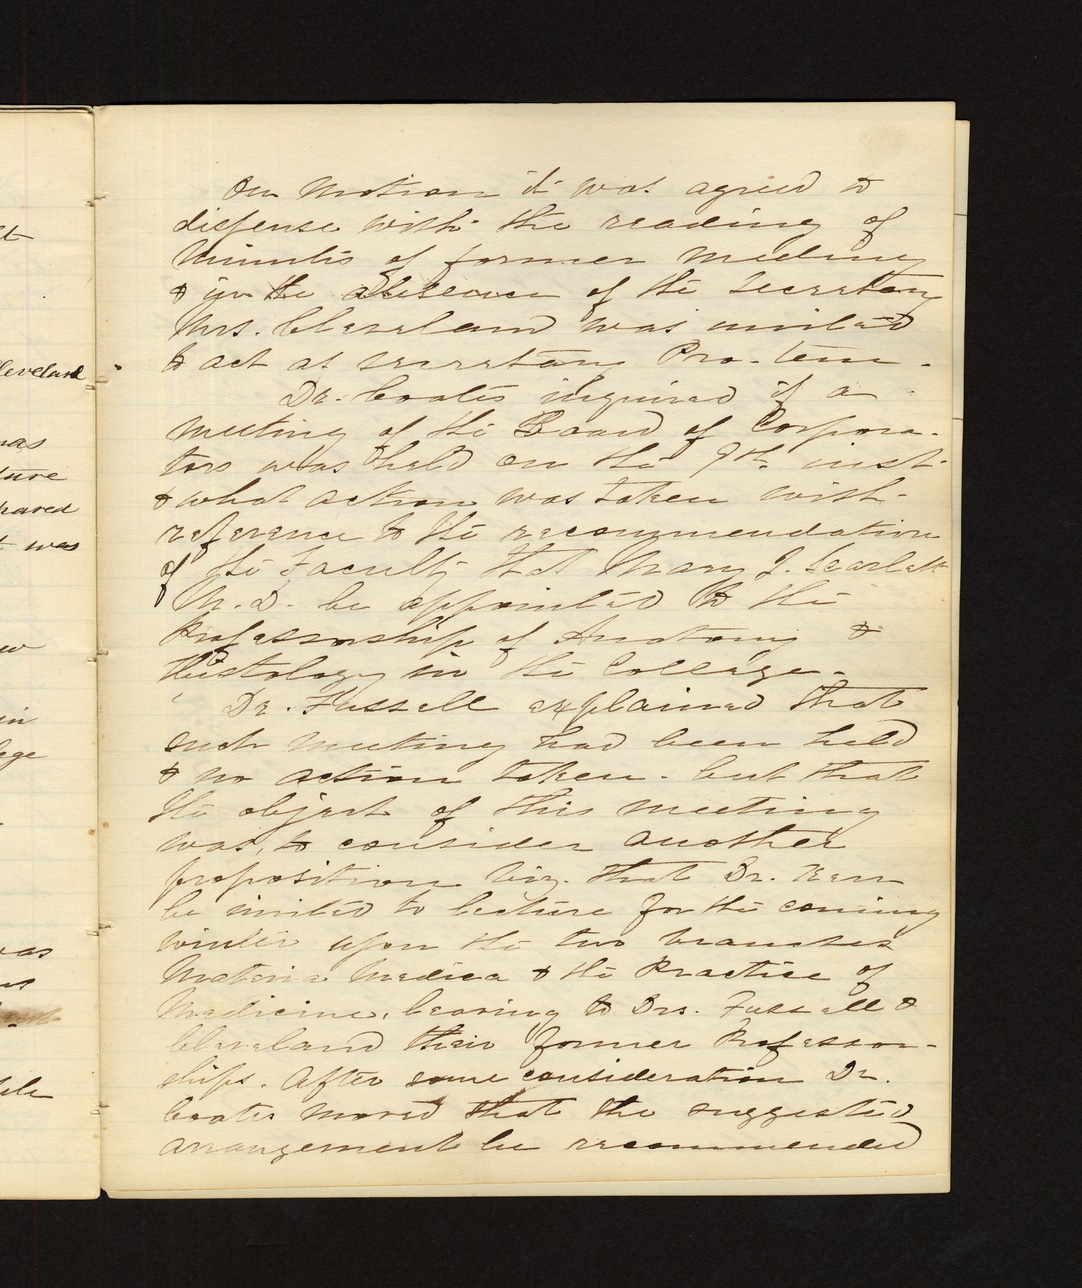 lt
Cleveland
was
ture
pared
t was
w
in
ege
was
ple
On motion it was agreed to
dispense with the reading of
minutes of former meeting
& in the absence of the Secretary
Mrs. Cleveland was invited
to act as secretary Pro-tem.
Dr. Coates inquired if a
meeting of the Board of Corpora-
tors was held on the 9th inst.
& what action was taken with
reference to the recommendation
of the Faculty that Mary J. Scarlett
M.D. be appointed to the
Professorship of Anatomy &
Histology in the College.
Dr. Fussell explained that
such meeting had been held
& no action taken. but that
the object of this meeting
was, to consider another
proposition viz. that Dr. Kerr
be invited to lecture for the coming
winter upon the two branches
Materia Medica & the Practice of
Medicine, leaving to Drs. Fussell &
Cleveland their former Professor-
ships. After some consideration Dr.
Coates moved that the suggested
arrangement be recommended